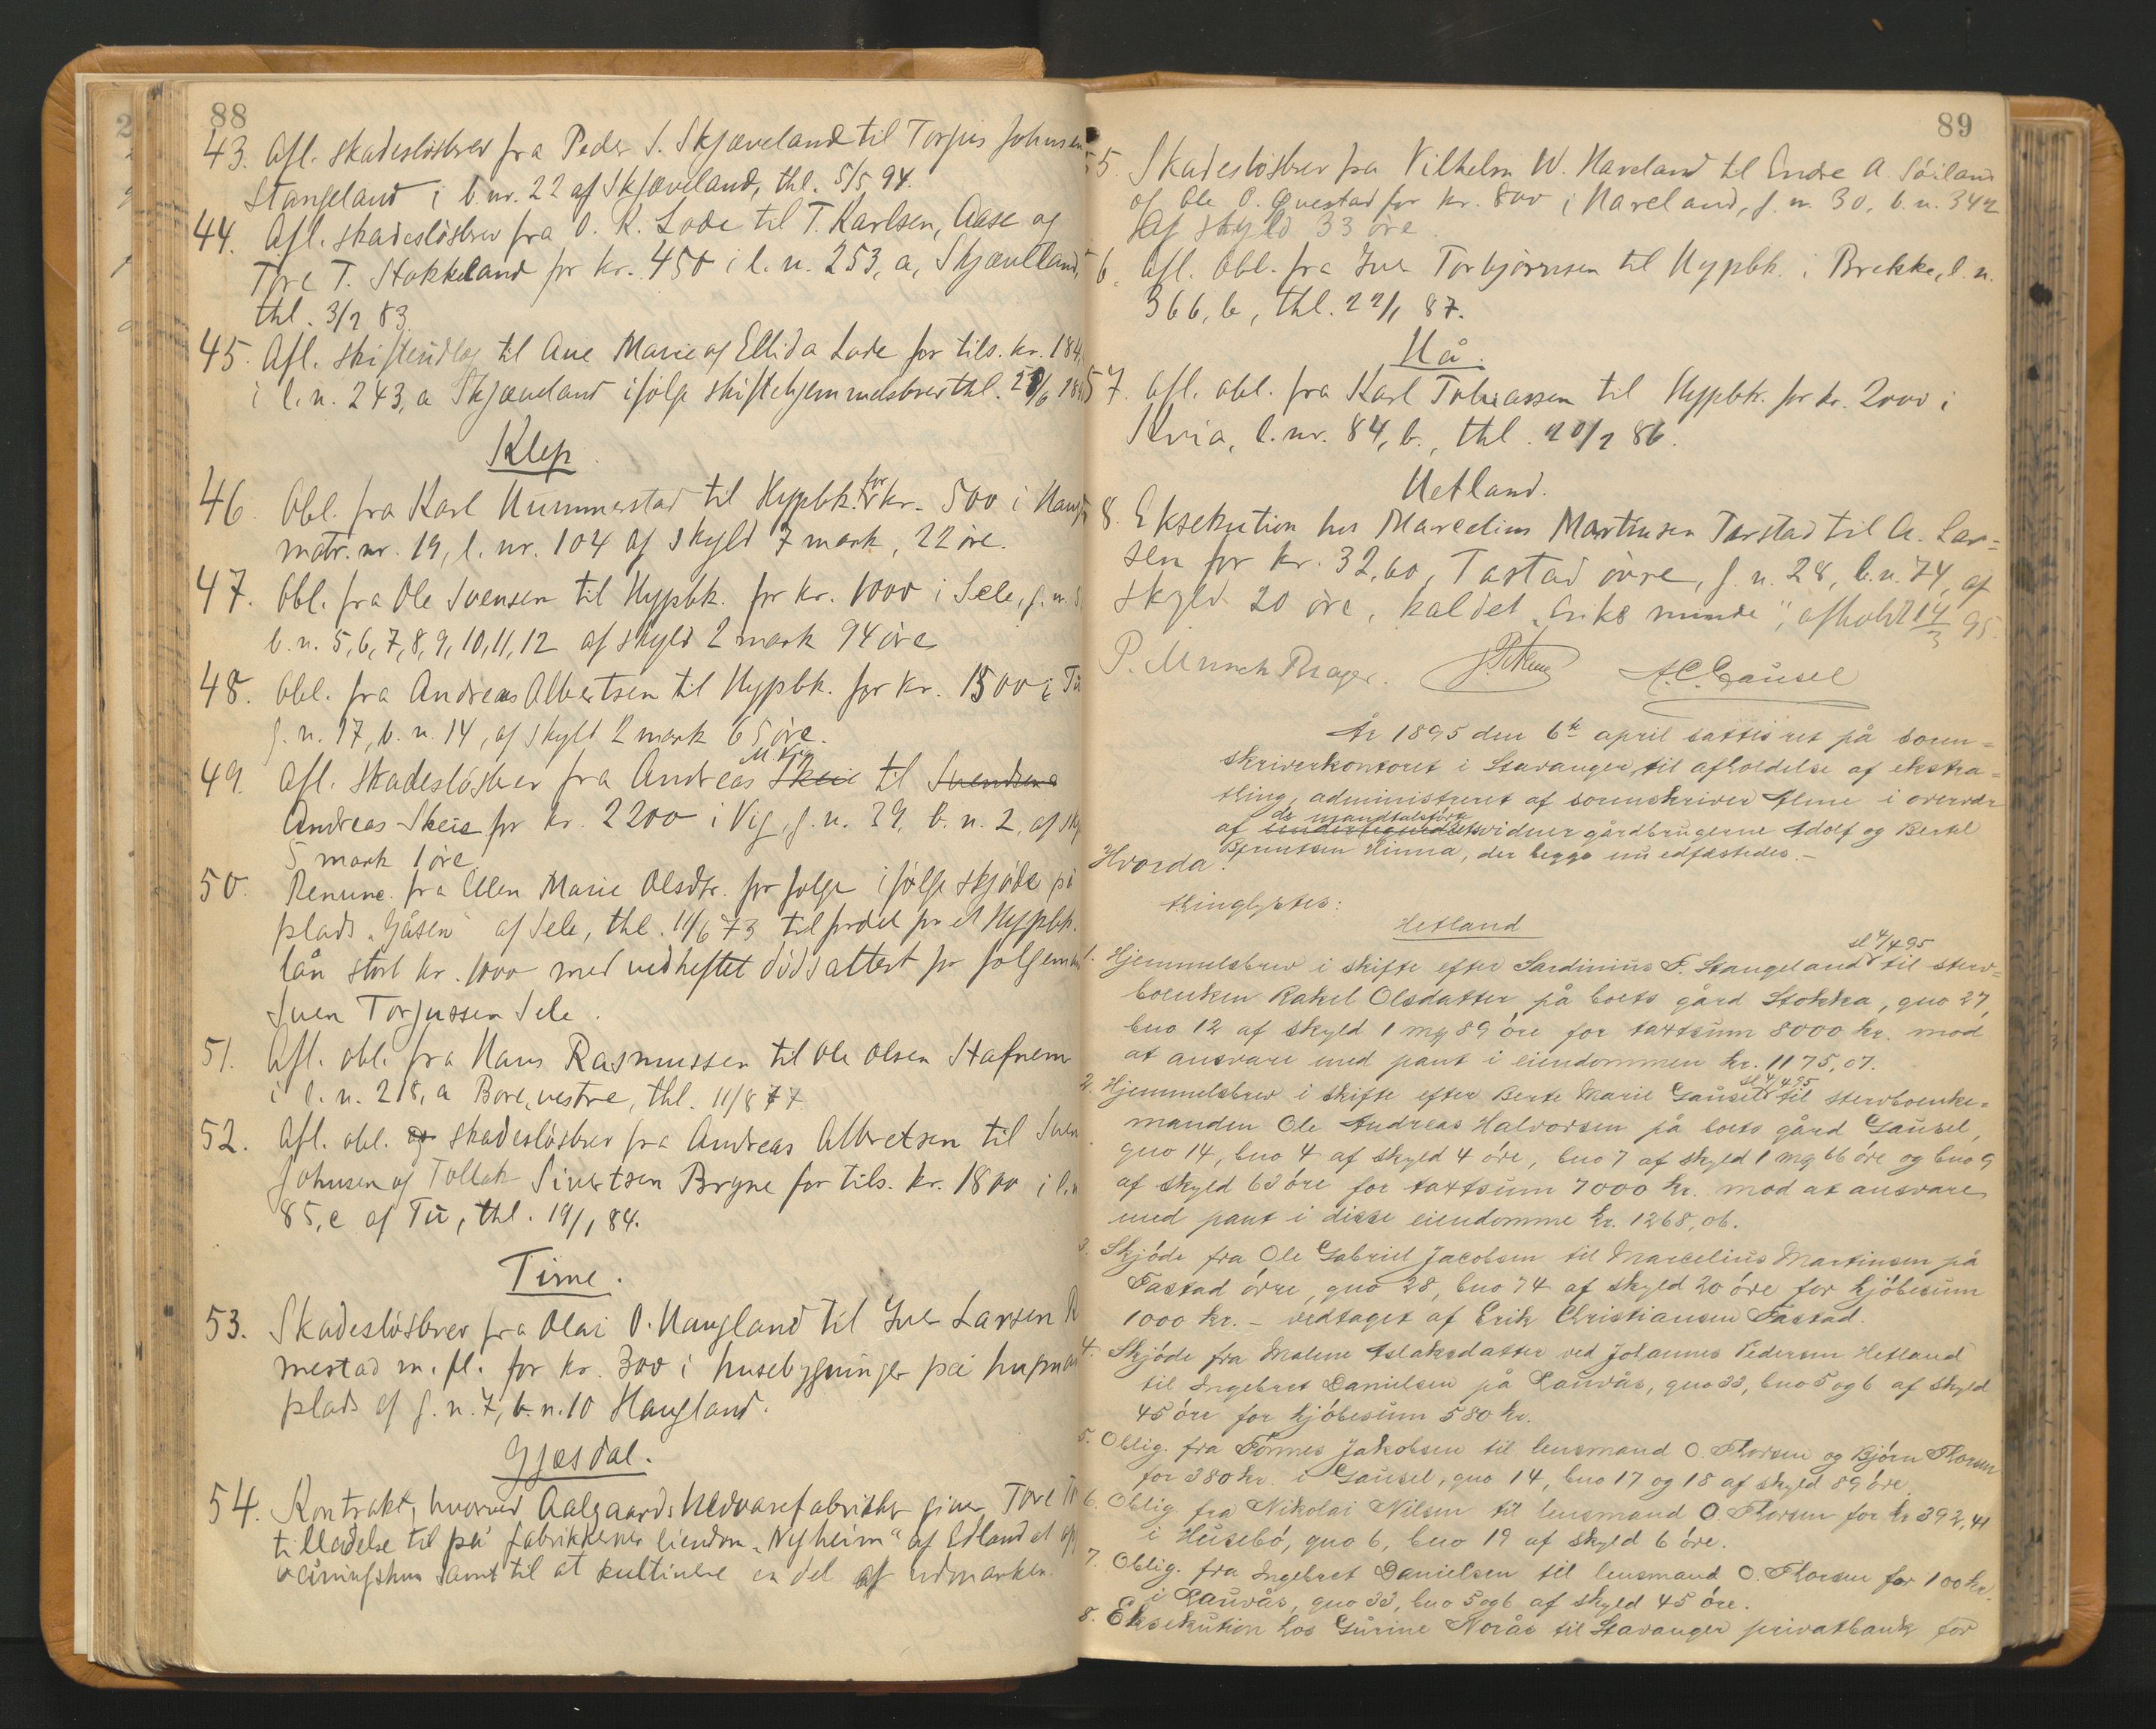 88
43. Afl. skadesløsbrev fra Peder S. Skjæveland til Torgris Johnsen
Stangeland i b.nr. 22 af Skjæveland, thl. 5/5 94.
44. Afl. skadesløsbrev fra O. K. Lode til T. Karlsen, Aase og
Tore T. Stokkeland for kr. 450 i l. n. 253, a, Skjæveland,
thl. 3/2 83.
45. Afl. skifteudlæg til Ane Marie og Ellida Lode for tils. kr. 184,
i l. n. 243, a Skjæveland ifølge skiftehjemmelsbrev thl.
Klep.
46. Obl. fra Karl Nummestad til Hypbk. for kr. 500 i
matr. nr. 19, l. nr. 104 af skyld 7 mark, 22 øre.
47. Obl. fra Ole Svensen til Hypbk. for kr. 1000 i Sele, g. n.
b. n. 5, 6, 7, 8, 9, 10, 11, 12 af skyld 2 mark 94 øre
48. Obl. fra Andreas Albertsen til Hypbk. for kr. 1500 i Tu
g. n. 17, b. n. 14, af skyld 2 mark 65 øre.
49. Afl. skadesløsbrev fra Andreas Skeie M. Vig til Svendsen
Andreas Skeie for kr. 2200 i Vig, g. n. 39, b. n. 2, af sky
5 mark 1 øre.
50. Renunc. fra Ellen Marie Olsdtr. for folge ifølge skjøde på
plads „Gåsen“ af Sele, thl. 11/6 73 til fordel for et Hypbk.
lån stort kr. 1000 med vedheftet dødsattest for folgemand
Sven Torjussen Sele.
51. Afl. obl. fra Hans Rasmussen til Ole Olsen Stafnem
i l. n. 218, a Bore, vestre, thl. 11/8 77
52. Afl. obl. og skadesløsbrev fra Andreas Albretsen til Sven
Johnsen og Tollak Sivertsen Bryne for tils. kr. 1800 i l. n
85, c af Tu, thl. 19/1 84.
Time.
53. Skadesløsbrev fra Olai O. Haugland til Iver Larsen R
mestad m. fl. for kr. 300 i husebygninger på husman
plads af g. n. 7, b. n. 10 Haugland.
Gjæsdal.
54. Kontrakt, hvorved Aalgaards Uldvarefabrikker giver Tore
tilladelse til på fabrikkernes eiendom „Nyheim“ af Edland at op
våningshus samt til at kultivere en del af udmarken.
89
55. Skadesløsbrev fra Vilhelm W. Haveland til Endre A. Søiland
og Ole O. Qvestad for kr. 800 i Haveland, g. n. 30, b. n. 342
af skyld 33 øre.
6. Afl. obl. fra Iver Torbjørnsen til Hypbk. i Brekke, l. n.
366, b, thl. 22/1 87.
Hå.
57. Afl. obl. fra Karl Tobiassen til Hypbk. for kr. 2000 i
Kvia, l. nr. 84, b., thl. 20/2 86.
Hetland.
8. Eksekution hos Marcelius Martinsen Tastad til A. Lar=
sen for kr. 32,60, Tastad øvre, g. n. 28, b. n. 74, af
skyld 20 øre, kaldet „Eriks minde“, afholdt 14/3 95.
P. Munch Prager. A. C. Gausel
År 1895 den 6te april sattes ret på soren=
skriverkontoret i Stavanger til afholdelse af ekstra=
thing, administreret af sorenskriver Alme i overvær
af undertegnede de mandtalsførte retsvidner gårdbrugerne Adolf og Bertel
Berntsen Hinna, der begge nu edfæstedes. –
Hvorda:
thinglystes:
Hetland
1. Hjemmelsbrev i skifte efter Sardinius F. Stangeland sl 4/4 95 til sterv=
boenken Rakel Olsdatter på boets gård Stokka, gno 27,
bno 12 af skyld 1 mg 89 øre for taxtsum 8000 kr. mod
at ansvare med pant i eiendommen kr. 1175,07.
2. Hjemmelsbrev i skifte efter Berte Marie Gausel sl 4/4 95 til stervboenke=
manden Ole Andreas Halvorsen på boets gård Gausel,
gno 14, bno 4 af skyld 4 øre, bno 7 af skyld 1 mg 66 øre og bno 9
af skyld 63 øre for taxtsum 7000 kr. mod at ansvare
med pant i disse eiendomme kr. 1268,06.
3. Skjøde fra Ole Gabriel Jacobsen til Marcelius Martinsen på
Tastad øvre, gno 28, bno 74 af skyld 20 øre for kjøbesum
1000 kr. – vedtaget af Erik Christiansen Tastad.
4. Skjøde fra Malene Aslaksdatter ved Johannes Pedersen Hetland
til Ingebret Danielsen på Rauvås, gno 33, bno 5 og 6 af skyld
45 øre for kjøbesum 580 kr.
5. Oblig. fra Tørres Jakobsen til lensmand O. Thorsen og Bjørn Thorsen
for 380 kr. i Gausel, gno 14, bno 17 og 18 af skyld 89 øre.
6. Oblig. fra Nikolai Nilsen til lensmand O. Thorsen for kr 392,41
i Husebø, gno 6, bno 19 af skyld 6 øre.
7. Oblig. fra Ingebret Danielsen til lensmand O. Thorsen for 100 kr.
i Rauvås, gno 33, bno 5 og 6 af skyld 45 øre.
8. Eksekution hos Gurine Norås til Stavanger privatbank for